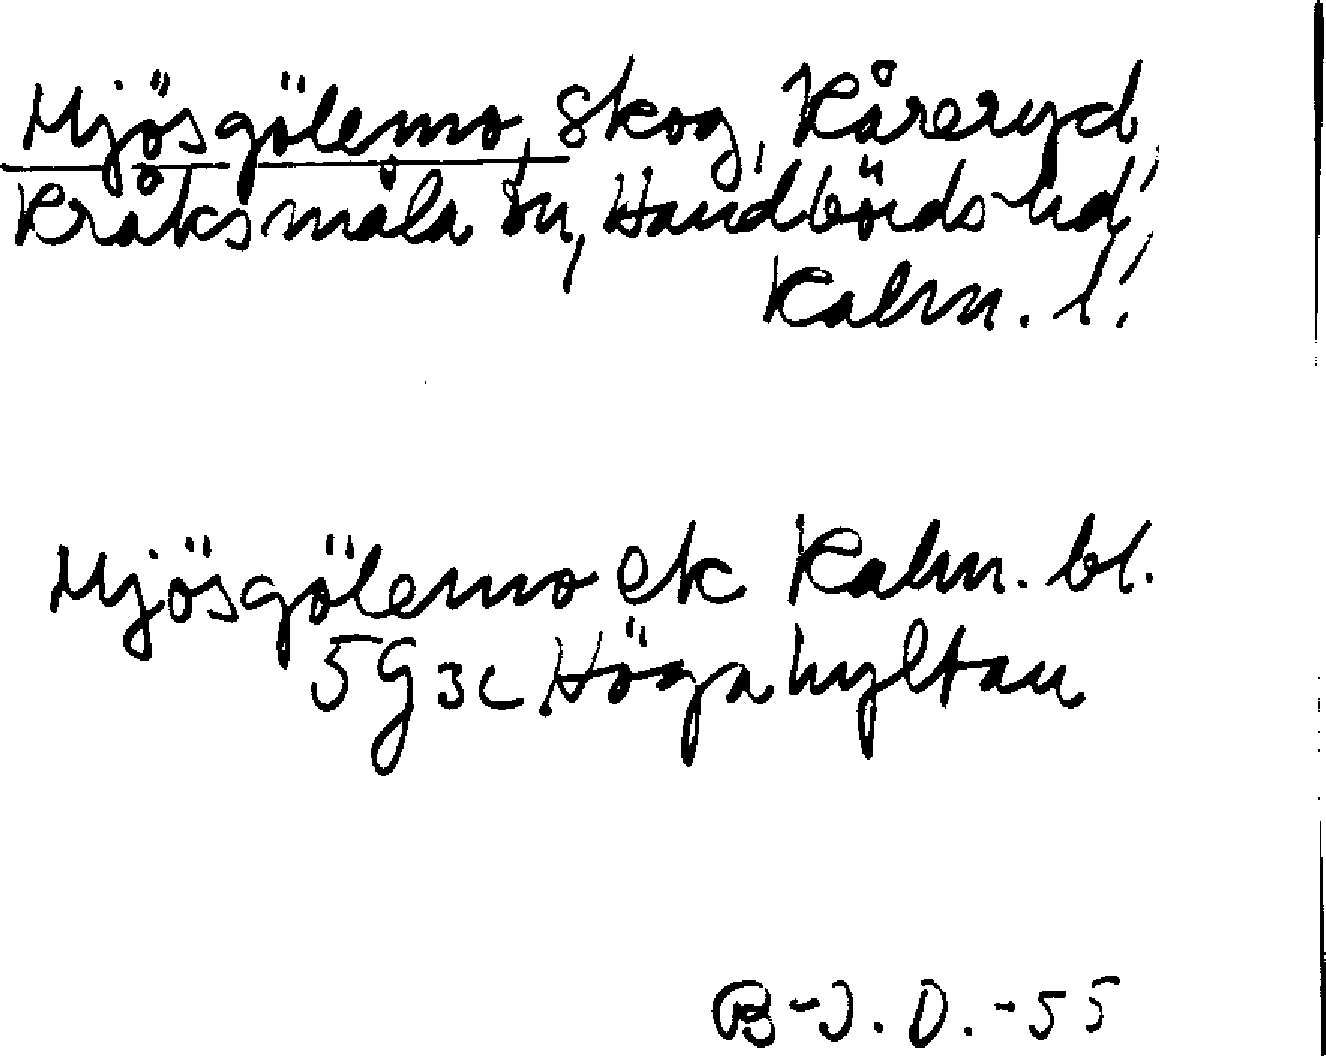 Mjösgölemo, Skog, Kåreryd,
Kråksmåla sn, Handbörds hd,
Kalm. l.
Mjösgölemo ek Kalm. bl.
5G3c Högahyltan
B-J. D. -55